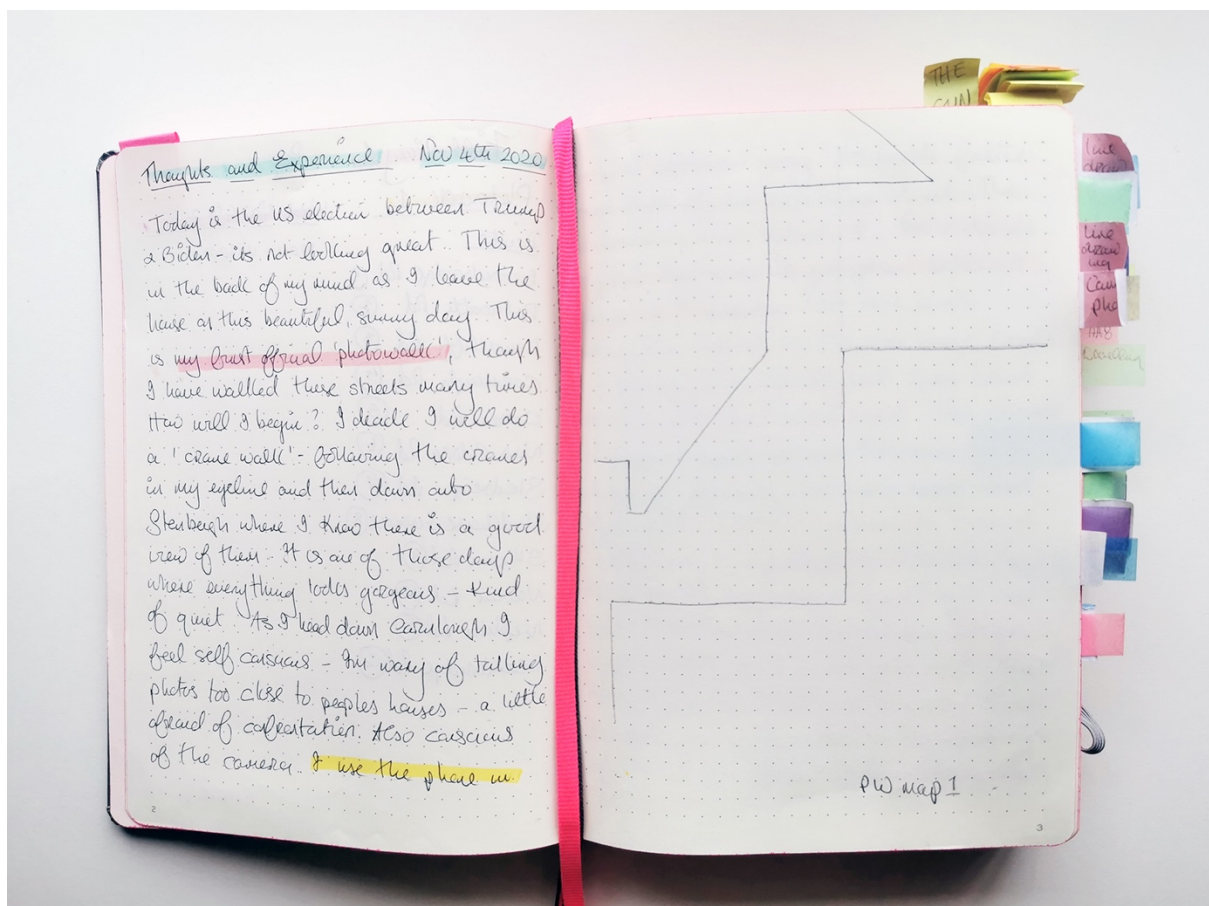 Thoughts and Experience Nov 4th 2020
Today is the US election between Trump
& Biden - its not looking great. This is
in the back of my mind as I leave the
house on this beautiful, sunny day. This
is my first official 'photowalk', though
I have walked these streets many times
How will I begin? I decide I will do
a 'crane walk' - following the cranes
in my eyeline and then down onto
where I know there is a good
view of them. It is one of those days
where everything looks gorgeous - kind
of quiet. As I head down I
feel self consious - Im wary of taking
photos too close to peoples houses - a little
afraid of Also conscious
of the camera. I use the phone in
2
THE
SUN
line
drawing
Line
draw
ing
Cam
pho
PW map 1
3